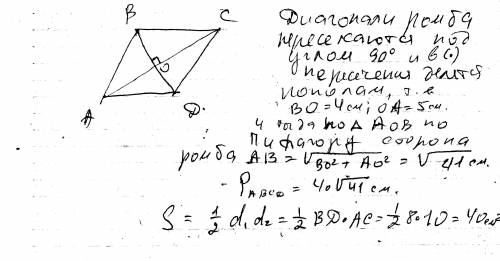 B C
A D.
Диагонали ромба
пересекаются под
углом 90° и в (.)
пересечения делятся
пополам, т.е
BO=4см; OA=5см.
и тогда по Δ AOB по
Пифагору сторона
ромба AB = √BO²+AO² = √41 см.
P ABCD = 4·√41 см.
S = 1/2 d₁ d₂ = 1/2 BD·AC = 1/2 8·10 = 40см²